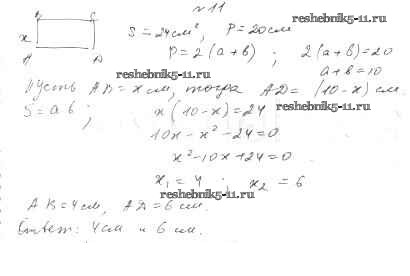 №11
B C
x S = 24 см², P = 20 см
A D P = 2(a+b) ; 2(a+b)=20
reshebnik5-11.ru a+b=10
Пусть AB = x см, тогда AD = (10-x) см.
reshebnik5-11.ru
S = ab ; x(10-x)=24
10x-x²-24=0
x²-10x+24=0
x₁ = 4 ; x₂ = 6
reshebnik5-11.ru
AB=4см, AD=6см.
Ответ: 4см и 6 см.